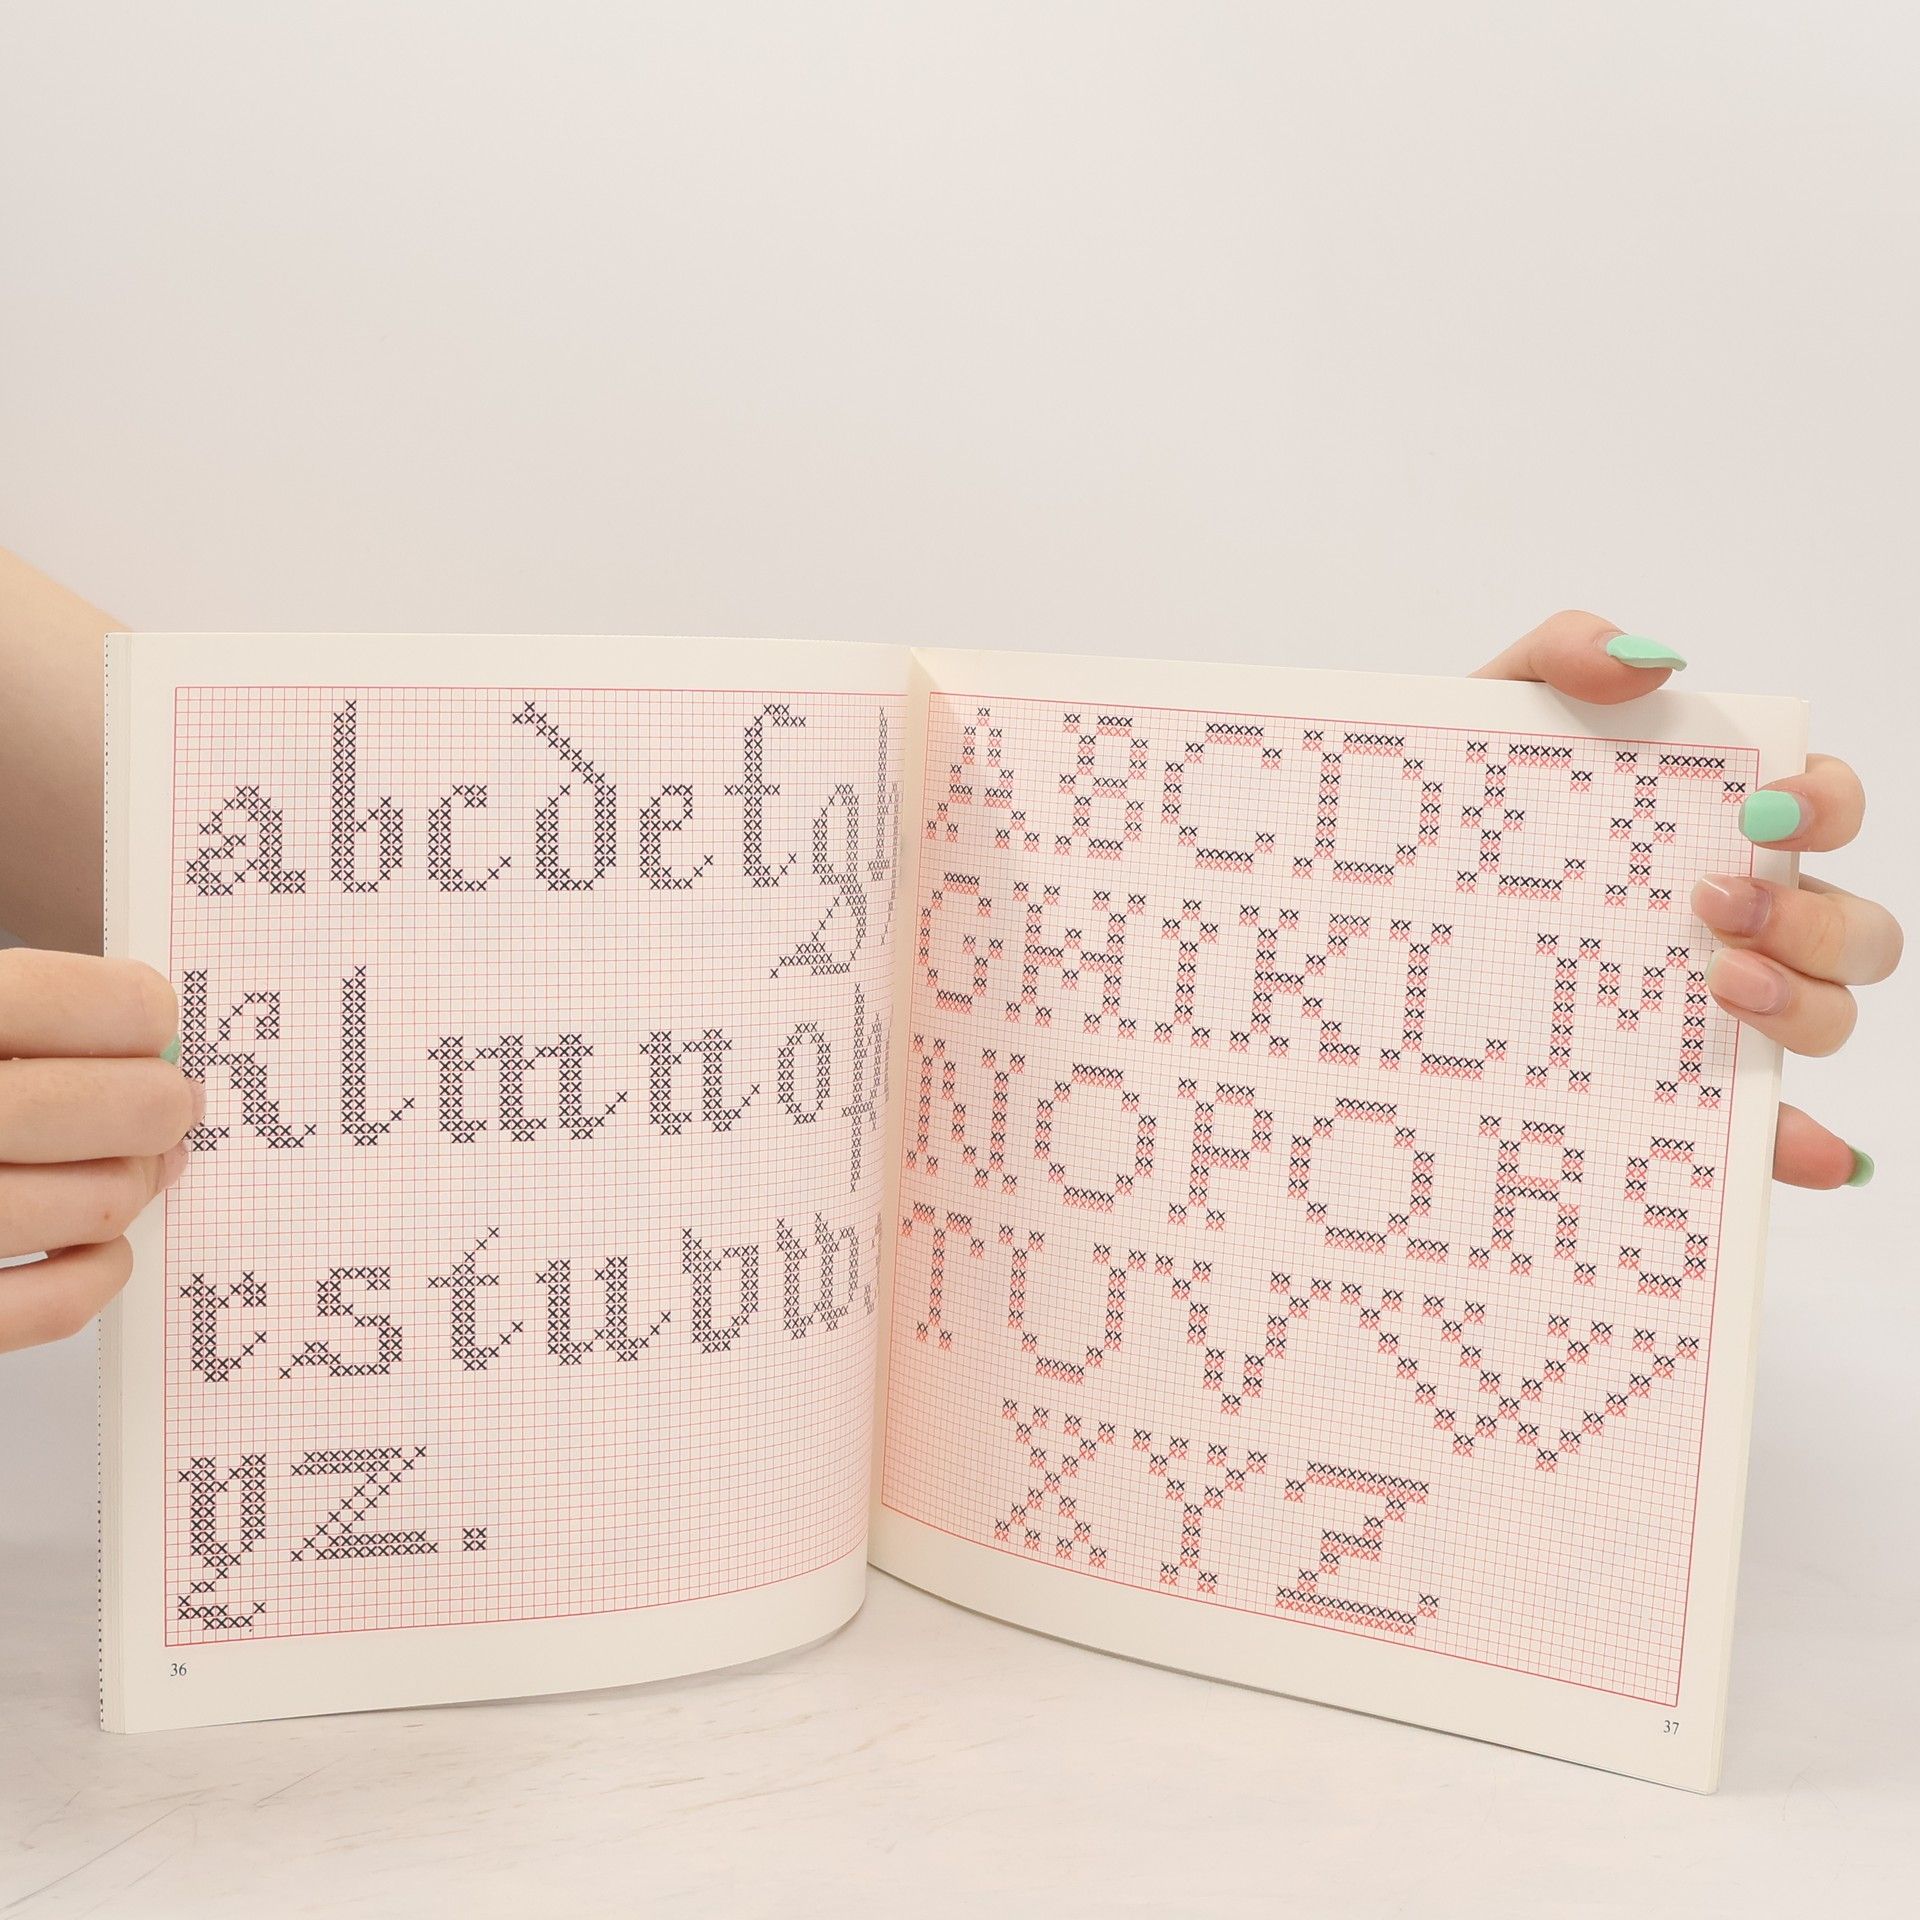 abcdefgh
klmnop
rstuvw
yz.
36
ABCDEF
GHIKLM
NOPQRS
TUVW
XYZ.
37